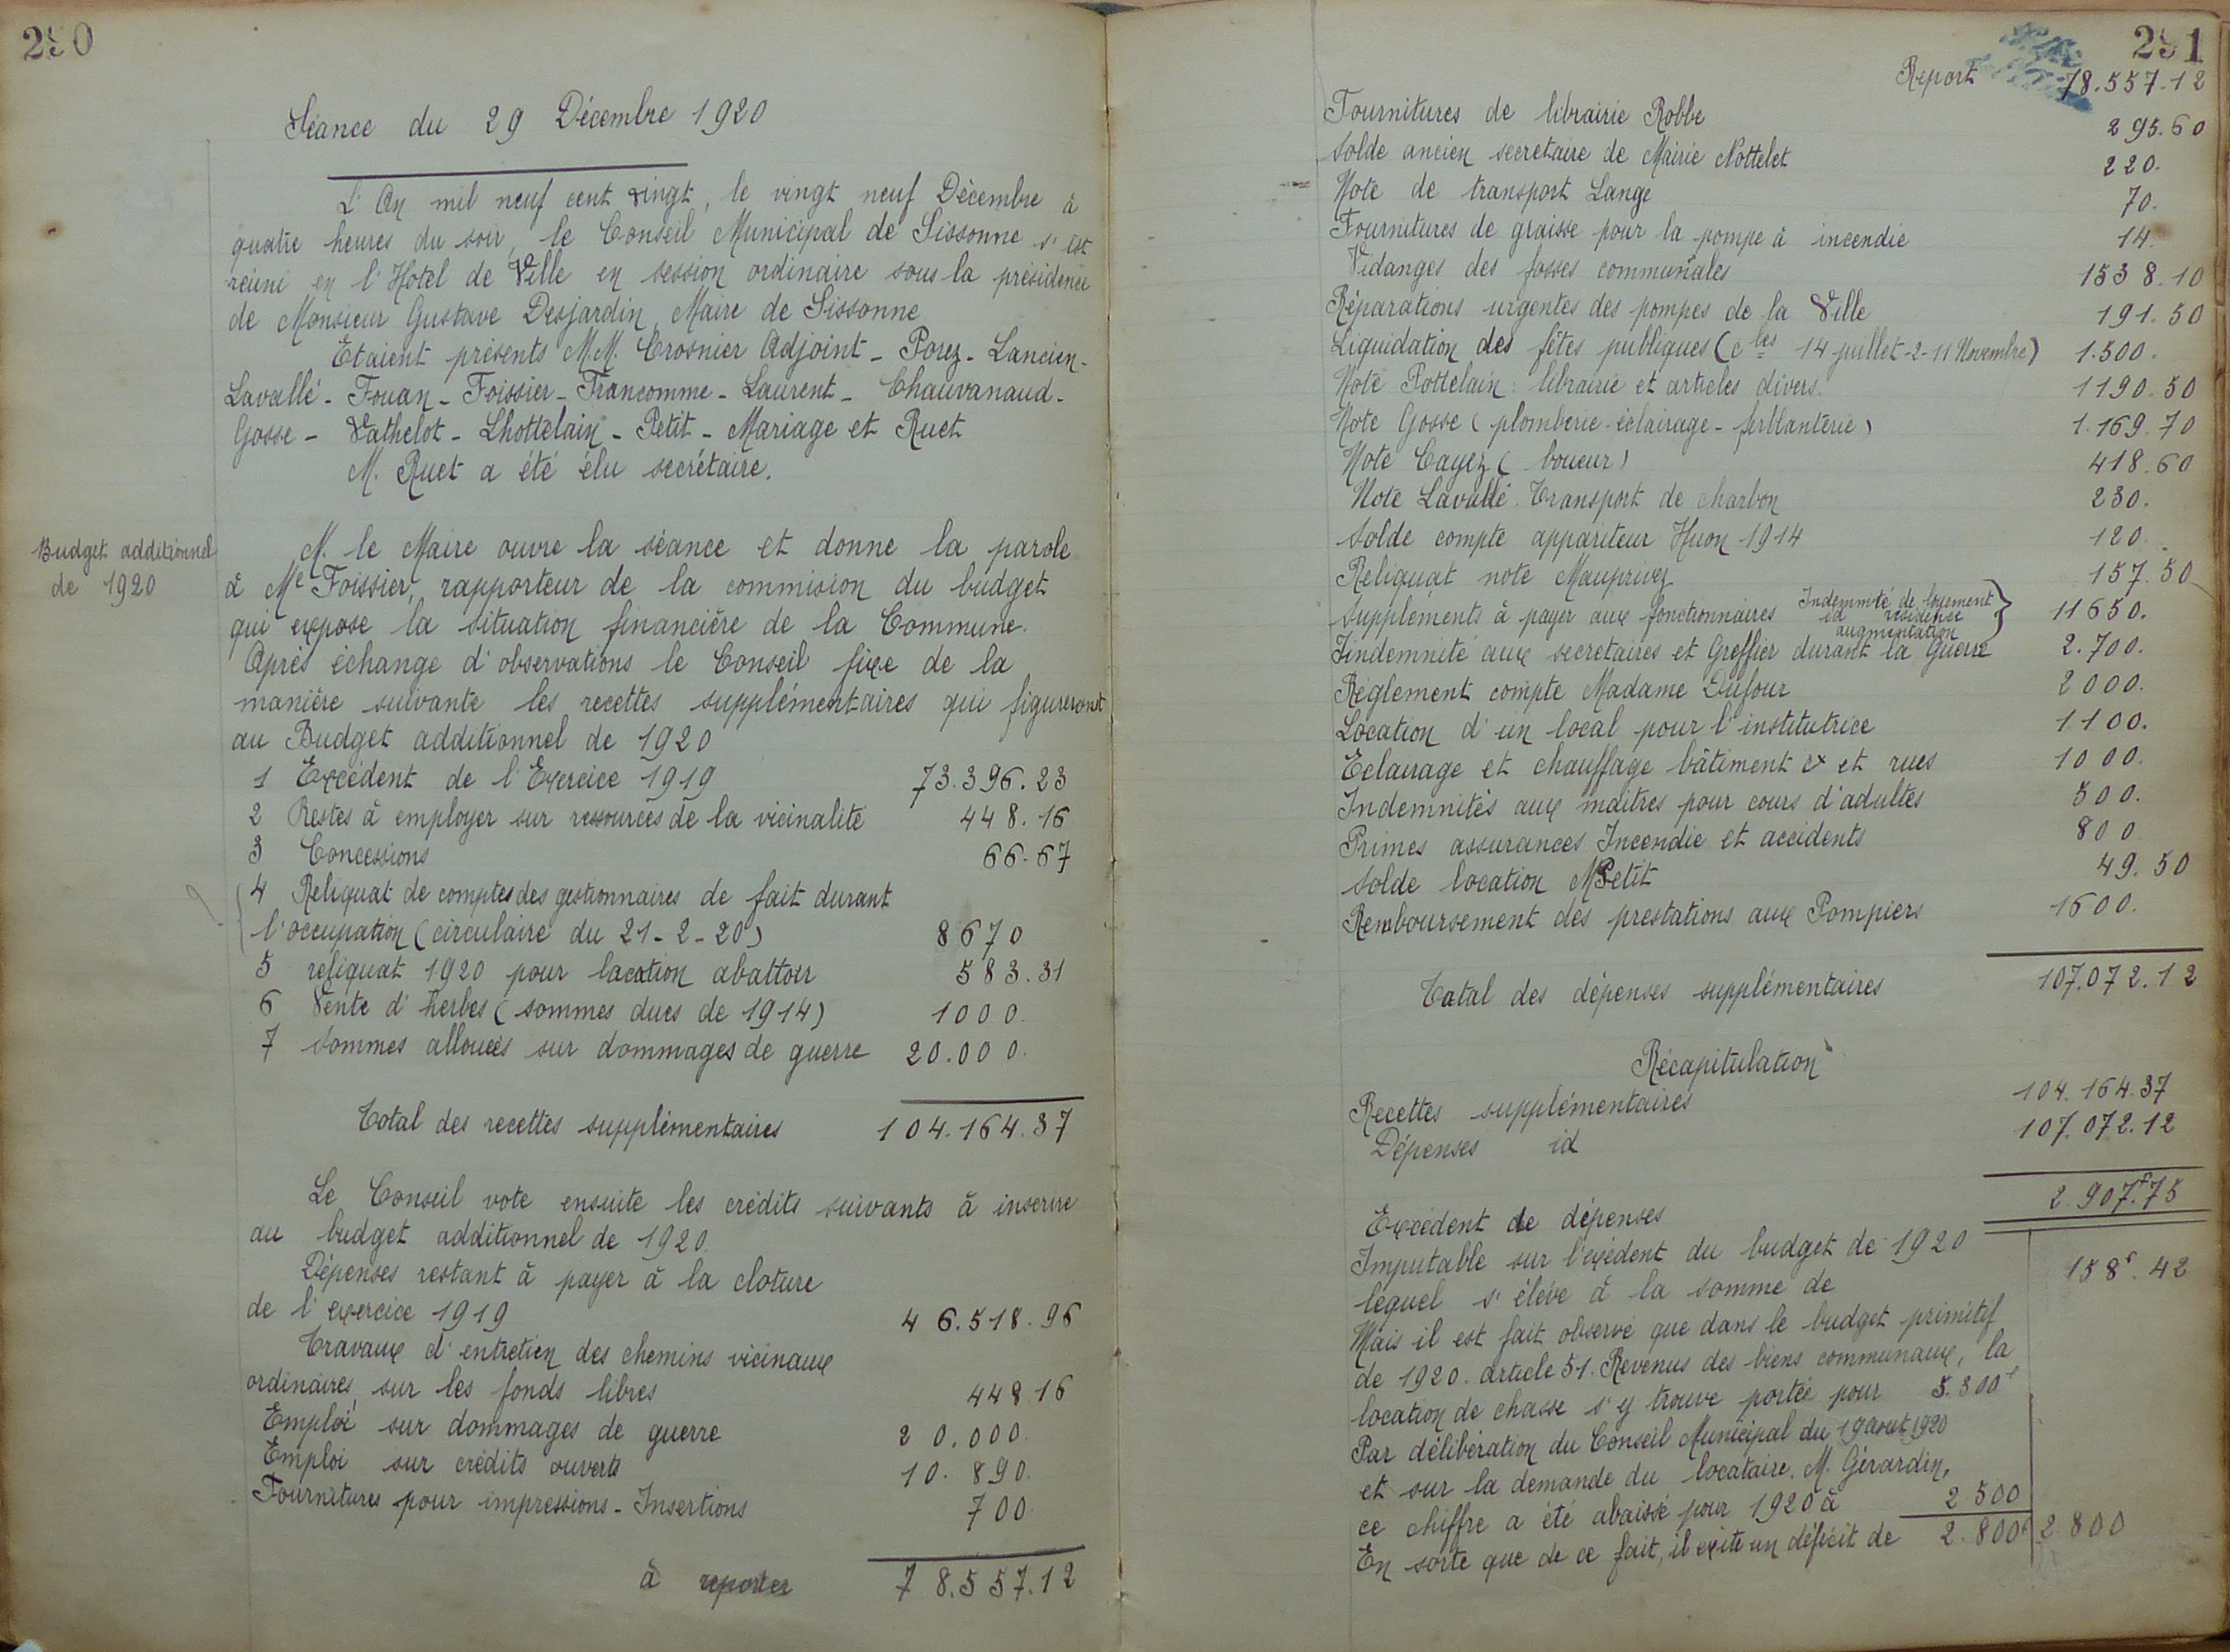 290
Séance du 29 Décembre 1920
L'An mil neuf cent vingt, le vingt neuf Décembre à
quatre heures du soir, le Conseil Municipal de Sissonne s'est
réuni en l'Hotel de Ville en session ordinaire sous la présidence
de Monsieur Gustave Desjardin, Maire de Sissonne
Etaient présents M.M. Crosnier Adjoint - Porez - Lancien -
Lavallé - Fouan - Foissier - Francomme - Laurent - Chauvanaud -
Gosse - Vathelot - Lhottelain - Petit - Mariage et Ruet
M. Ruet a été élu secrétaire.
Budget additionnel
de 1920
M. le Maire ouvre la séance et donne la parole
à Me Foissier, rapporteur de la commision du budget
qui expose la situation financière de la Commune.
Après échange d'observations le Conseil fixe de la
manière suivante les recettes supplémentaires qui figureront
au Budget additionnel de 1920
1 Excédent de l'Exercice 1919 73.396.23
2 Restes à employer sur ressources de la vicinalité 448.16
3 Concessions 66.67
4 Reliquat de comptes des gestionnaires de fait durant
l'occupation (circulaire du 21-2-20) 8670
5 reliquat 1920 pour lacation abattoir 583.31
6 Vente d'herbes (sommes dues de 1914) 1000
7 Sommes allouées sur dommages de guerre 20.000.
Total des recettes supplémentaires 104.164.37
Le Conseil vote ensuite les crédits suivants à inscrire
au budget additionnel de 1920.
Dépenses restant à payer à la cloture
de l'exercice 1919 46.518.96
Travaux d'entretien des chemins vicinaux
ordinaires, sur les fonds libres 448.16
Emploi sur dommages de guerre 20.000.
Emploi sur crédits ouverts 10.890.
Fournitures pour impressions - Insertions 700.
à reporter 78.557.12
291
Report 78.557.12
Fournitures de librairie Robbe 295.60
Solde ancien secretaire de Mairie Nottelet 220.
Note de transport Lange 70.
Fournitures de graisse pour la pompe à incendie 14.
Vidanges des fosses communales 1538.10
Réparations urgentes des pompes de la Ville 191.50
Liquidation des fêtes publiques (cles 14 juillet - 2 - 11 Novembre) 1.500.
Note Pottelain : librairie et articles divers. 1190.50
Note Gosse (plomberie - éclairage - ferblanterie) 1.169.70
Note Cayez (boueur) 418.60
Note Lavallé. Transport de charbon 230.
Solde compte appariteur Huon 1914 120.
Reliquat note Mauprivez 157.50
Suppléments à payer aux fonctionnaires Indemnité de logement 11650.
id résidence
augmentation
Iindemnité aux secretaires et Greffier durant la Guerre 2.700.
Réglement compte Madame Dufour 2000.
Location d'un local pour l'institutrice 1100.
Eclairage et chauffage bâtiment et rues 1000.
Indemnités aux maîtres pour cours d'adultes 500.
Primes assurances Incendie et accidents 800
Solde location M Petit 49.50
Remboursement des prestations aux Pompiers 1600.
Tatal des dépenses supplémentaires 107.072.12
Récapitulation
Recettes supplémentaires 104.164.37
Dépenses id 107.072.12
Excédent de dépenses 2.907.f75
Imputable sur l'excédent du budget de 1920
léquel s'élève à la somme de 158f.42
Mais il est fait observé que dans le budget primitif
de 1920. article 51. Revenus des biens communaux, la
location de chasse s'y trouve portée pour 5.300f
Par délibération du Conseil Municipal du 19 aout 1920
et sur la demande du locataire. M. Gérardin,
ce chiffre a été abaissé pour 1920 à 2500
En sorte que de ce fait, il exite un déficit de 2.800f 2.800